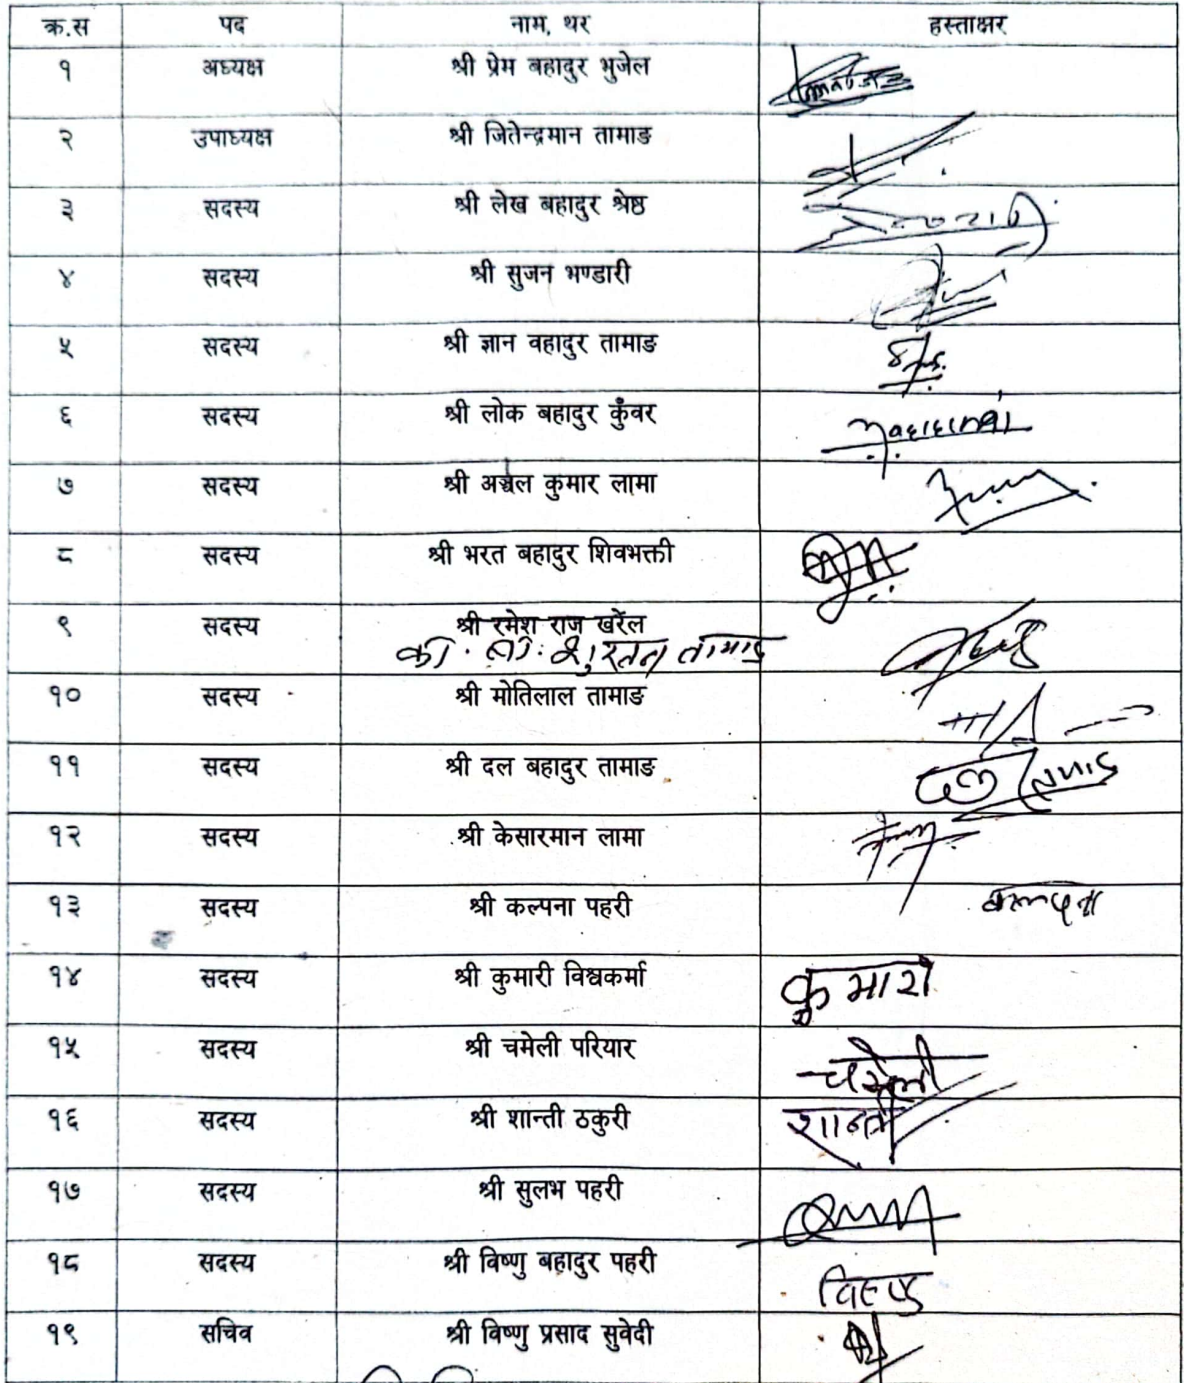 क्र.स पद नाम, थर हस्ताक्षर
१ अध्यक्ष श्री प्रेम बहादुर भुजेल
२ उपाध्यक्ष श्री जितेन्द्रमान तामाङ
३ सदस्य श्री लेख बहादुर श्रेष्ठ
४ सदस्य श्री सुजन भण्डारी
५ सदस्य श्री ज्ञान वहादुर तामाङ
६ सदस्य श्री लोक बहादुर कुँवर
७ सदस्य श्री कुमार लामा
८ सदस्य श्री भरत बहादुर शिवभक्ती
९ सदस्य श्री रमेश राज खरेल
का. वा. तामाङ
१० सदस्य श्री मोतिलाल तामाङ
११ सदस्य श्री दल बहादुर तामाङ दल तामाङ
१२ सदस्य श्री केसारमान लामा
१३ सदस्य श्री कल्पना पहरी कल्पना
१४ सदस्य श्री कुमारी विश्वकर्मा कुमारी
१५ सदस्य श्री चमेली परियार चमेली
१६ सदस्य श्री शान्ती ठकुरी शान्ती
१७ सदस्य श्री सुलभ पहरी
१८ सदस्य श्री विष्णु बहादुर पहरी विष्णु
१९ सचिव श्री विष्णु प्रसाद सुवेदी